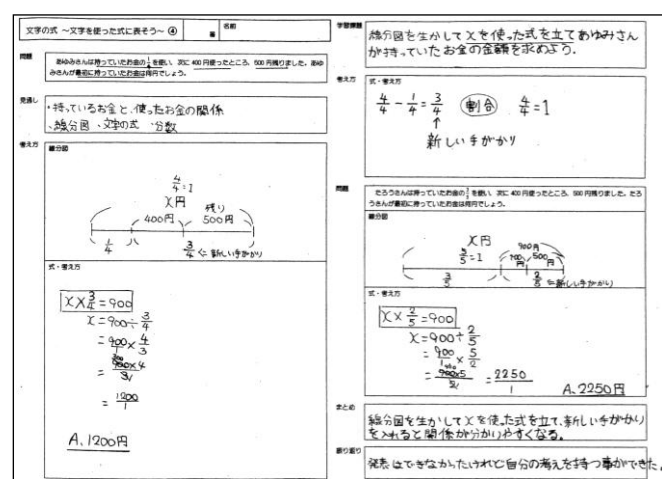 文字の式 ～文字を使った式に表そう～ ④
名前
問題
あゆみさんは持っていたお金の1/4を使い、次に400円使ったところ、500円残りました。あゆ
みさんが最初に持っていたお金は何円でしょう。
見通し
・持っているお金と、使ったお金の関係
・線分図 ・文字の式 ・分数
考え方
線分図
4/4=1
x円
残り
400円 500円
1/4
3/4 ⇐新しい手がかり
式・考え方
x×3/4=900
x=900÷3/4
=900/1×4/3
=900×4/3
=1200/1
A. 1200円
学習課題
線分図を生かしてxを使った式を立てあゆみさん
が持っていたお金の金額を求めよう。
考え方
式・考え方
4/4-1/4=3/4 割合 4/4=1
↑
新しい手がかり
問題
たろうさんは持っていたお金の3/5を使い、次に400円使ったところ、500円残りました。たろ
うさんが最初に持っていたお金は何円でしょう。
線分図
x円
5/5=1
900円
400円 500円
3/5
2/5 ⇐新しい手がかり
式・考え方
x×2/5=900
x=900÷2/5
=900/1×5/2
=900×5/2=2250/1
A. 2250円
まとめ
線分図を生かしてxを使った式を立て、新しい手がかり
を入れると関係が分かりやすくなる。
振り返り
発表はできなかったけれど自分の考えを持つ事ができた。